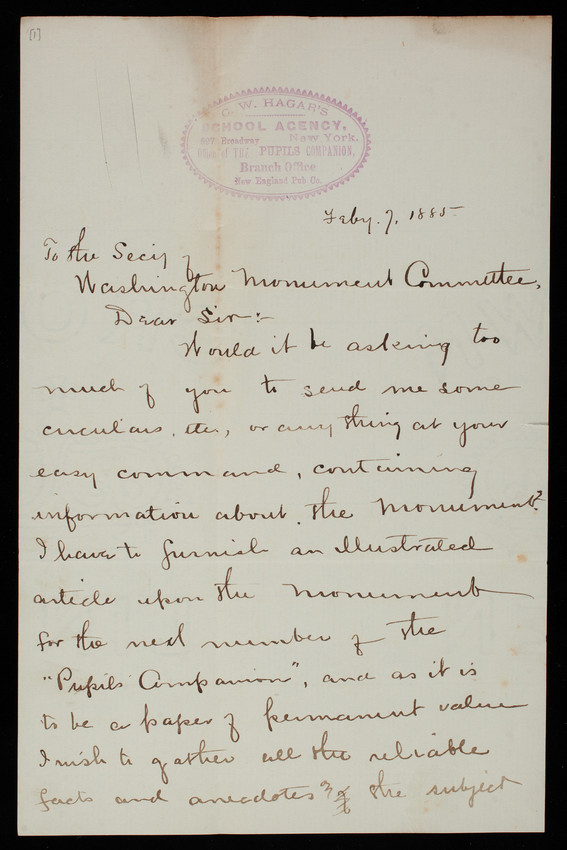 [1]
G. W. HAGAR'S
SCHOOL AGENCY,
Broadway New York.
Office of THE PUPILS COMPANION,
Branch Office
New England Pub Co.
Feby. 7, 1885
To the Secy of
Washington Monument Committee,
Dear Sir:-
Would it be asking too
much of you to send me some
circulars, etc., or any thing at your
easy command, containing
information about the Monument?
I have to furnish an Illustrated
article upon the Monument
for the next number of the
"Pupils Companion", and as it is
to be a paper of permanent value
I wish to gather all the reliable
facts and anecdotes of the subject